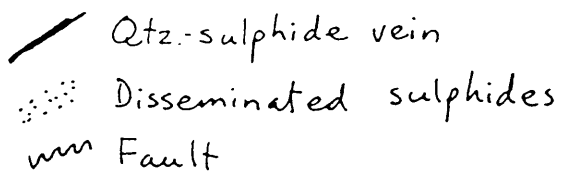 Qtz.-sulphide vein
Disseminated sulphides
Fault